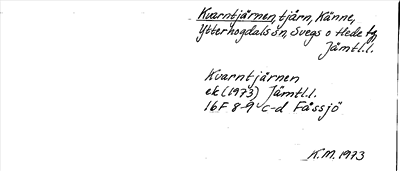 Kvarntjärnen, tjärn, Känne,
Ytterhogdals sn, Svegs o Hede tg
Jämtl.l.
Kvarntjärnen
ek(1973) Jämtl.l.
16F 8-9 c-d Fåssjö
K.M. 1973